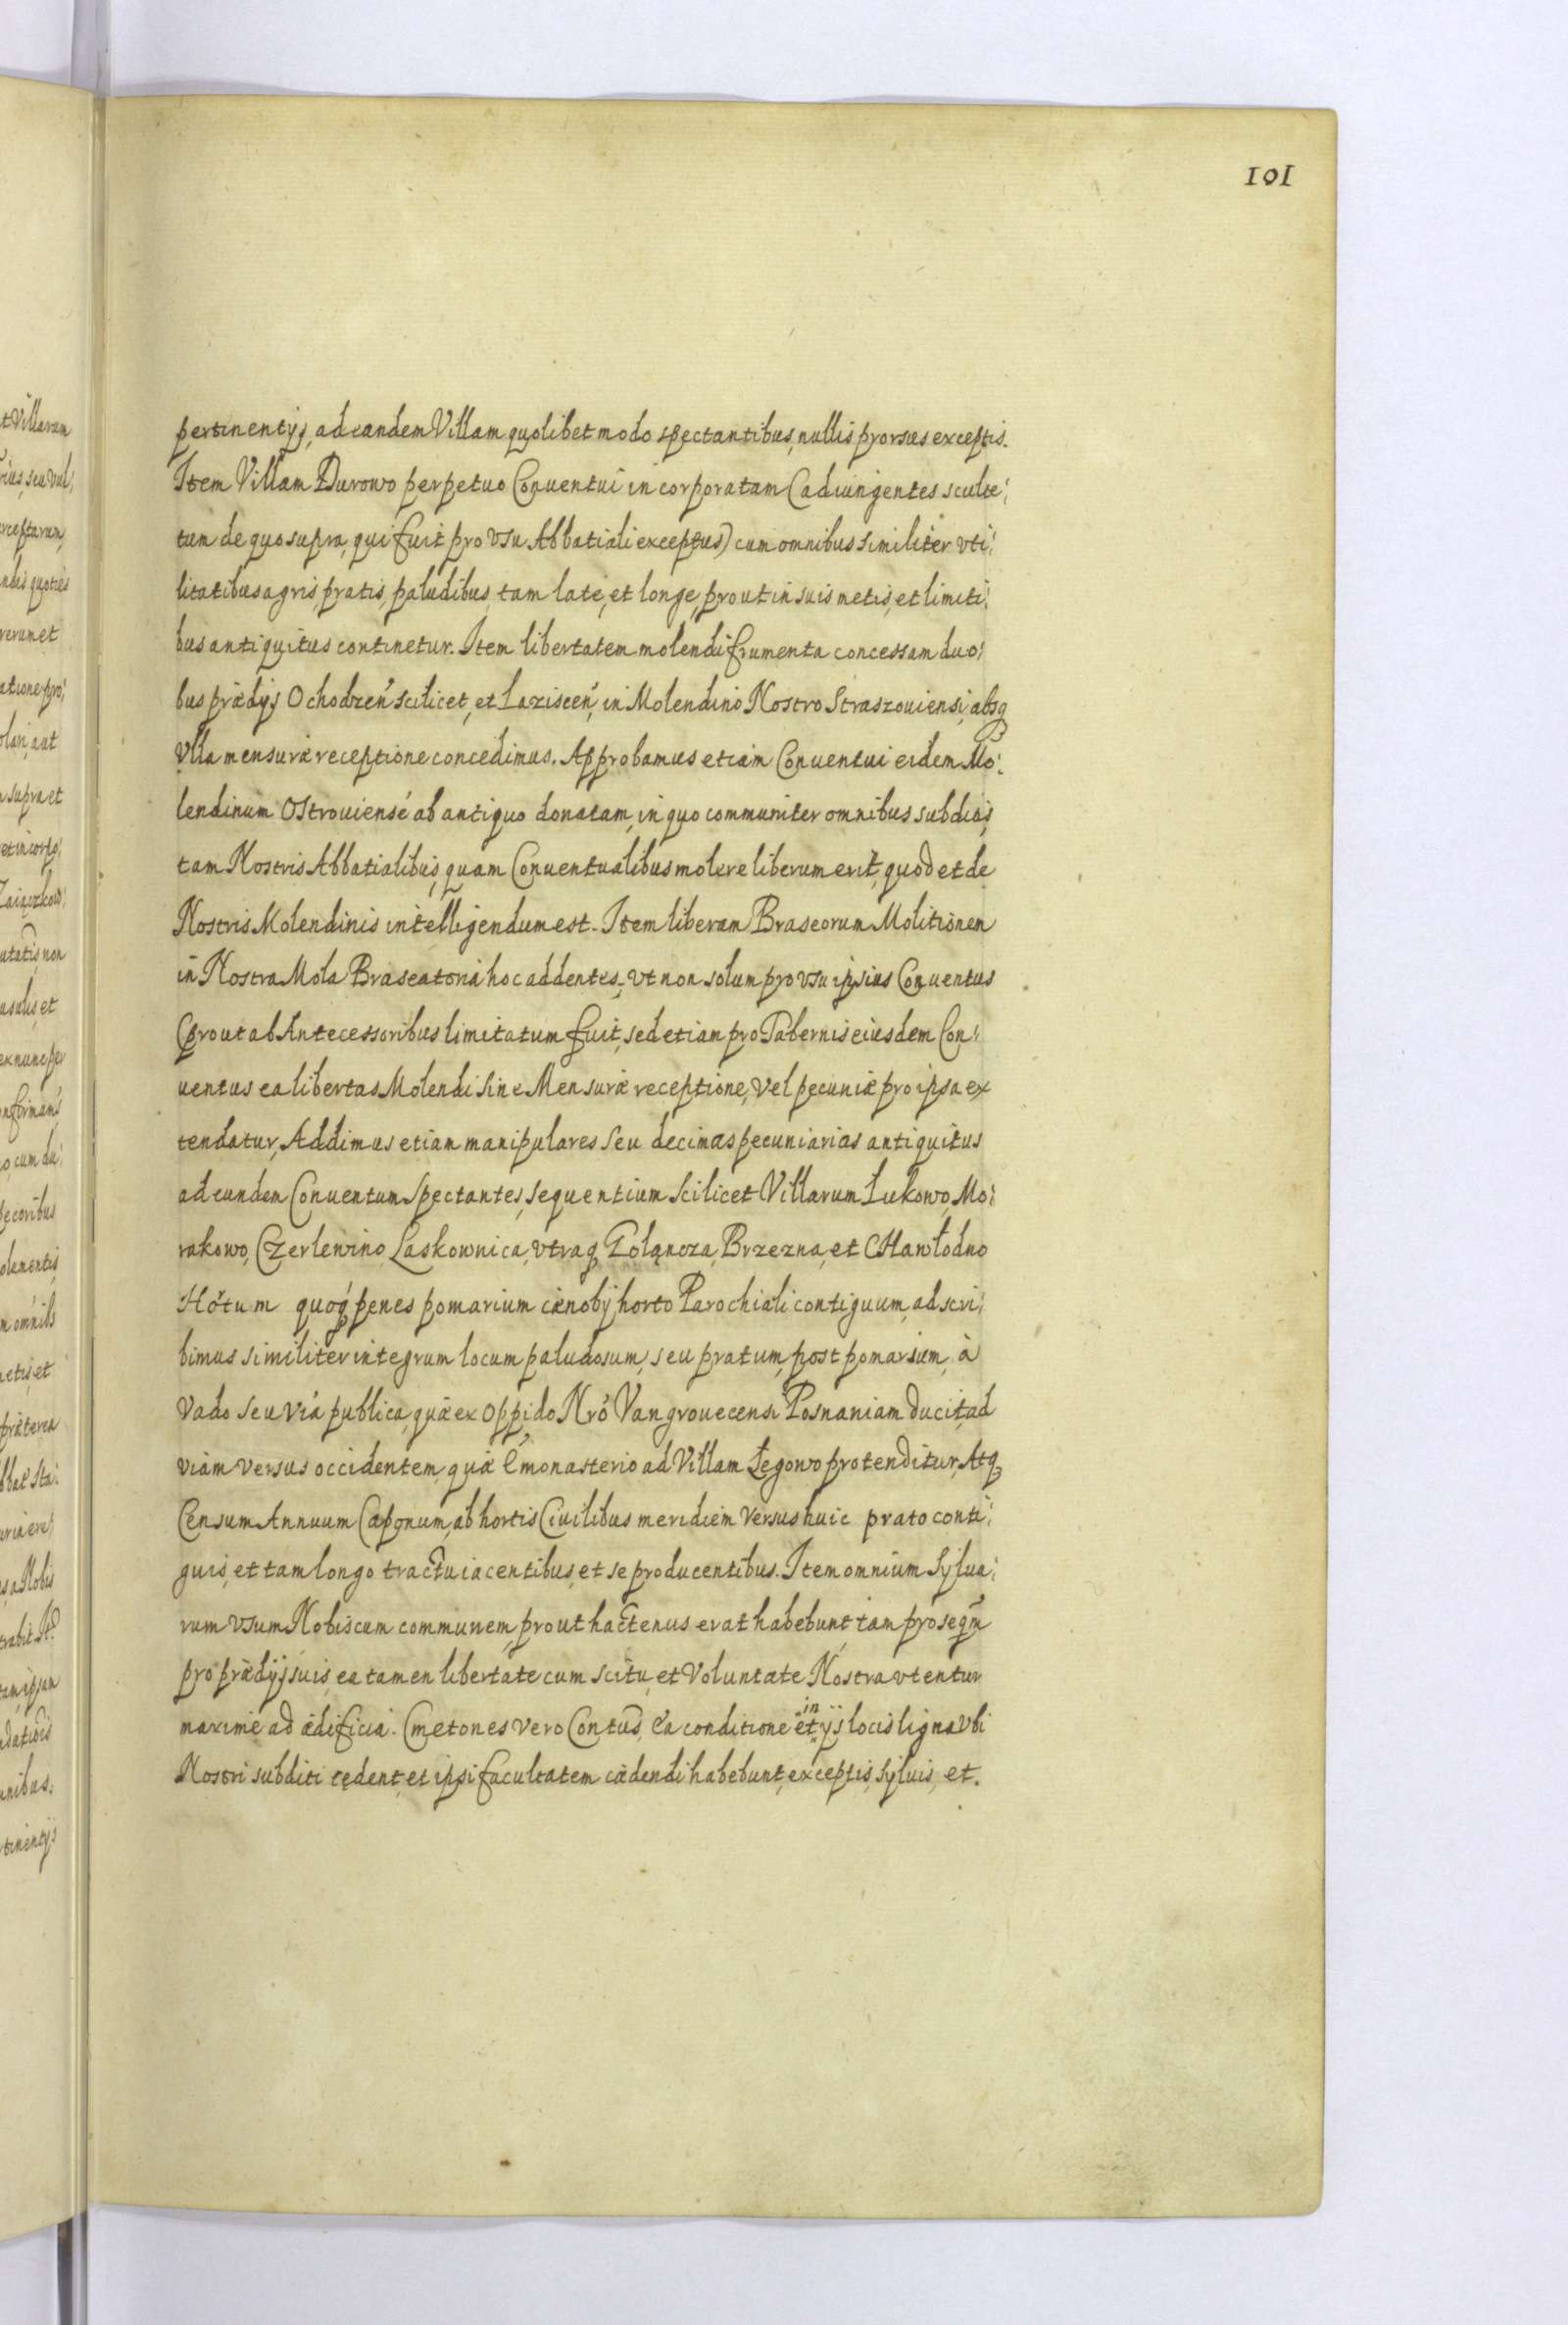 101
pertinentijs, ad eandem Villam quolibet modo spectantibus, nullis prorsus exceptis.
Item Villam Durowo perpetuo Conuentui incorporatam (adiungentes sculte:
tum de quo supra, qui fuit pro vsu Abbatiali exceptus) cum omnibus similiter vti:
litatibus agris, pratis, paludibus, tam late, et longe, prout in suis metis, et limiti:
bus antiquitus continetur. Item libertatem molendi frumenta concessam duo:
bus prædijs Ochodzen̄ scilicet, et Laziscen̄, in Molendino Nostro Straszouiensi, absq
Vlla mensuræ receptione concedimus. Approbamus etiam Conuentui eidem Mo:
lendinum Ostrouiense ab antiquo donatam, in quo communiter omnibus subdi⁠tis,
tam Nostris Abbatialibus, quam Conuentualibus molere liberum erit, quod et de
Nostris Molendinis intelligendum est. Item liberam Braseorum Molitionem
in Nostra Mola Braseatoria hoc addentes, vt non solum pro vsu ipsius Conuentus
(prout ab Antecessoribus limitatum fuit, sed etiam pro Tabernis eiusdem Con:
uentus ea libertas Molendi sine Mensuræ receptione, vel pecuniæ pro ipsa ex
tendatur, Addimus etiam manipulares seu decimas pecuniarias antiquitus
ad eundem Conuentum Spectantes, sequentium scilicet Villarum Łukowo, Mo:
rakowo, Czerlewino, Laskownica, vtraq Gołancza, Brzezna, et CHawłodno
Hótum quoq penes pomarium cænobij horto Parochiali contiguum, adscri:
bimus similiter integrum locum paludosum, seu pratum, post pomarium, à
Vado seu via publica, quæ ex Oppido Nrō Vangrouecensi Posnaniam ducit, ad
viam versus occidentem, quæ è monasterio ad Villam Łęgowo protenditur, Atq
Censum Annuum Caponum, ab hortis Ciuilibus meridiem versus huic prato conti:
guis, et tam longo tractu iacentibus, et se producentibus. Item omnium Sylua:
rum vsum Nobiscum communem, prout hactenus erat habebunt, tam pro se qm̄
pro prædijs suis, ea tamen libertate cum scitu, et Voluntate Nostra vtentur
maxime ad ædificia. Cmetones vero Contus̄, ea conditione et in ijs locis ligna Vbi
Nostri subditi cędent, et ipsi facultatem cædendi habebunt, exceptis, Syluis, et.